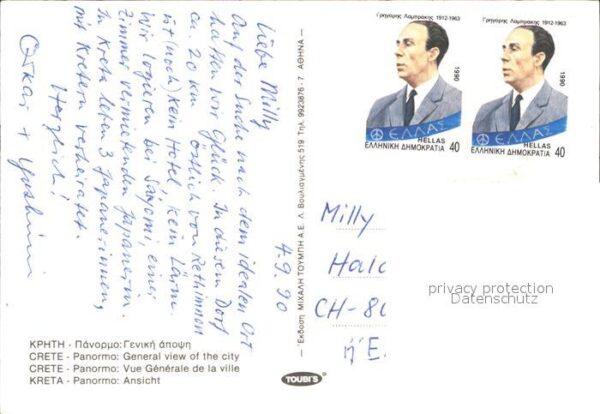 4.9.90
Liebe Milly
Auf der Suche nach dem idealen Ort
hatten wir Glück. In diesem Dorf
ca. 20 km östlich von Rethimnon
ist (noch) kein Hotel, kein Lärm.
Wir logieren bei Sayomi, einer
Zimmer vermietenden Japanerin.
In Kreta leben 3 Japanerinnen,
mit Kretern verheiratet.
Herzlich!
Oskar + Yoshimi
ΚΡΗΤΗ - Πάνορμο: Γενική άποψη
CRETE - Panormo: General view of the city
CRETE - Panormo: Vue Générale de la ville
KRETA - Panormo: Ansicht
TOUBI'S
— Έκδοση ΜΙΧΑΛΗ ΤΟΥΜΠΗ Α.Ε. Λ. Βουλιαγμένης 519 Τηλ. 9923876 - 7 ΑΘΗΝΑ —
Γρηγόρης Λαμπράκης 1912-1963
1990
ΕΛΛΑΣ
HELLAS
ΕΛΛΗΝΙΚΗ ΔΗΜΟΚΡΑΤΙΑ 40
Γρηγόρης Λαμπράκης 1912-1963
1990
ΕΛΛΑΣ
HELLAS
ΕΛΛΗΝΙΚΗ ΔΗΜΟΚΡΑΤΙΑ 40
Milly
Hald
CH-80
privacy protection
Datenschutz